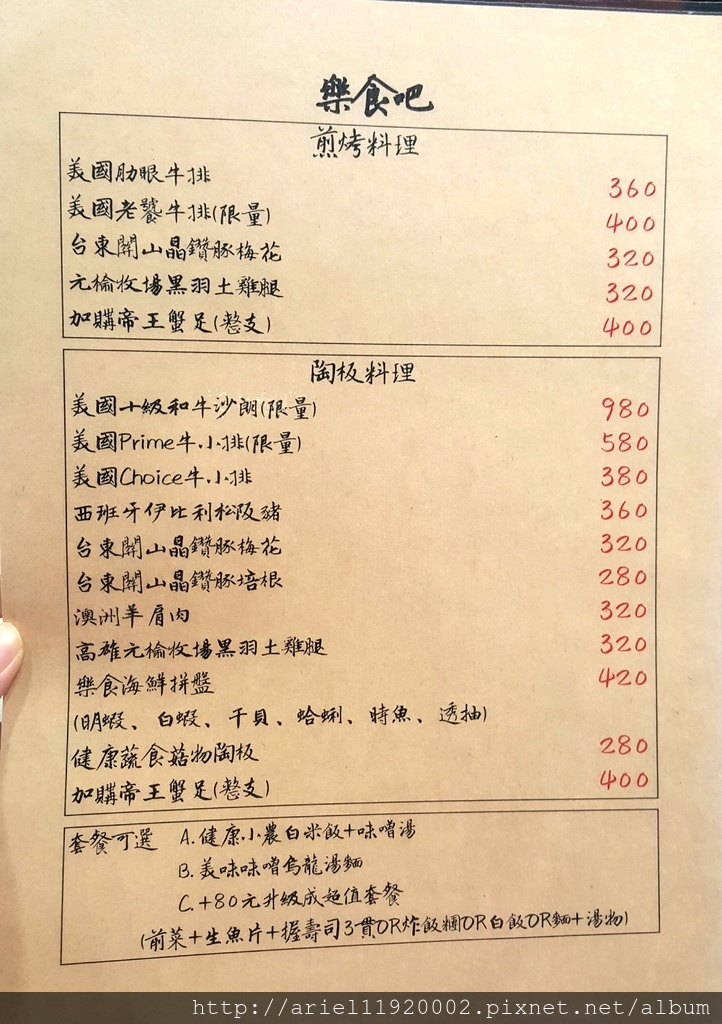 樂食吧
煎烤料理
美國肋眼牛排 360
美國老饕牛排(限量) 400
台東關山晶鑽豚梅花 320
元榆牧場黑羽土雞腿 320
加購帝王蟹足(整支) 400
陶板料理
美國十級和牛沙朗(限量) 980
美國Prime牛小排(限量) 580
美國Choice牛小排 380
西班牙伊比利松阪豬 360
台東關山晶鑽豚梅花 320
台東關山晶鑽豚培根 280
澳洲羊肩肉 320
高雄元榆牧場黑羽土雞腿 320
樂食海鮮拼盤 420
(明蝦、白蝦、干貝、蛤蜊、時魚、透抽)
健康蔬食菇物陶板 280
加購帝王蟹足(整支) 400
套餐可選 A.健康小農白米飯+味噌湯
B.美味味噌烏龍湯麵
C.+80元升級成超值套餐
(前菜+生魚片+握壽司3貫OR炸飯糰OR白飯OR麵+湯物)
http://ariel11920002.pixnet.net/album